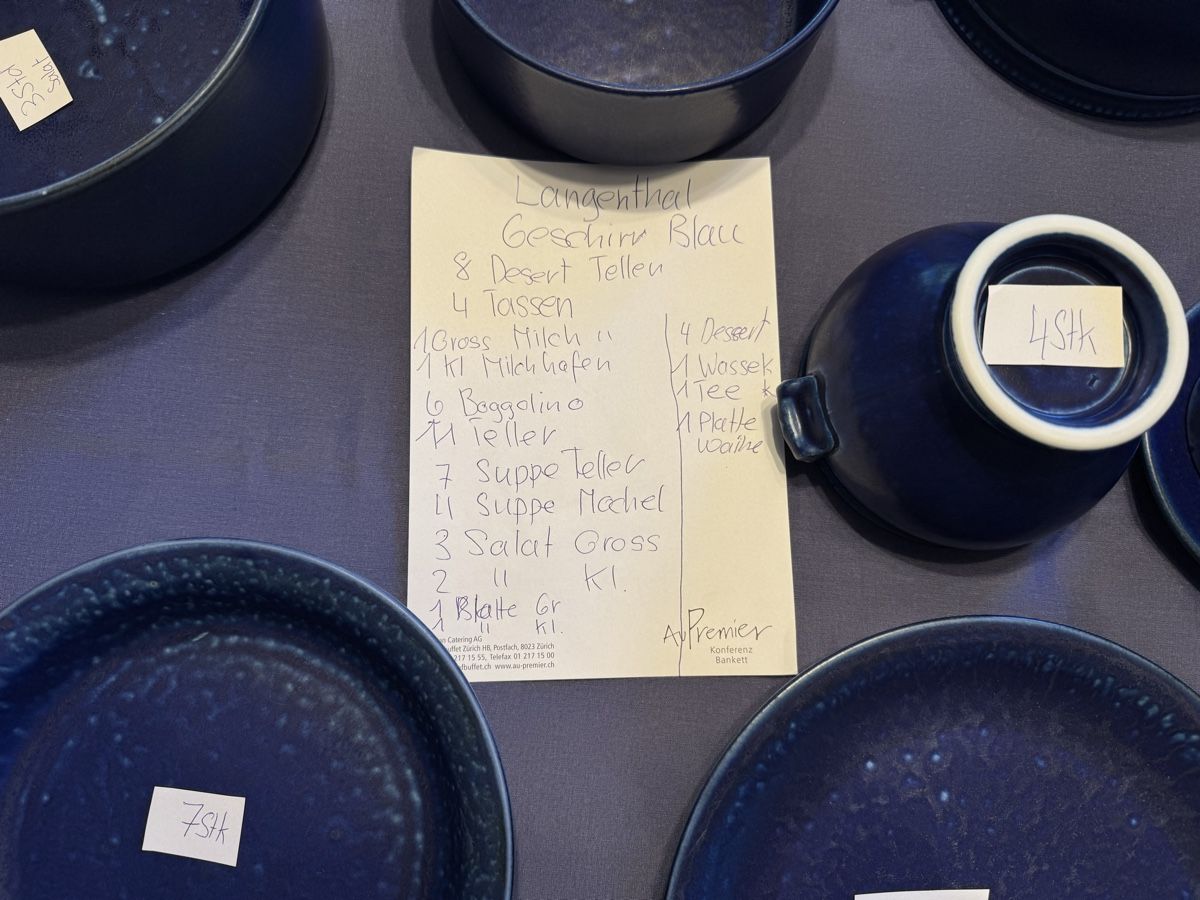 3 Stk
Salat
Langenthal
Geschirr Blau
8 Desert Teller
4 Tassen
1 Gross Milch "
1 Kl Milchhafen
6 Boggolino
11 Teller
7 Suppe Teller
4 Suppe Mochel
3 Salat Gross
2 " Kl.
1 Blatte Gr
1 " Kl.
4 Dessert
1 Wassek
1 Tee K
1 Platte
Catering AG
uffet Zürich HB, Postfach, 8023 Zürich
217 15 55, Telefax 01 217 15 00
dbuffet.ch www.au-premier.ch
Au Premier
Konferenz
Bankett
4 Stk
7 Stk